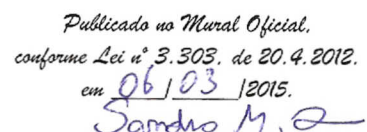 Publicado no Mural Oficial,
conforme Lei nº 3.303, de 20.4.2012.
em 06/03/2015.
Sandro M.